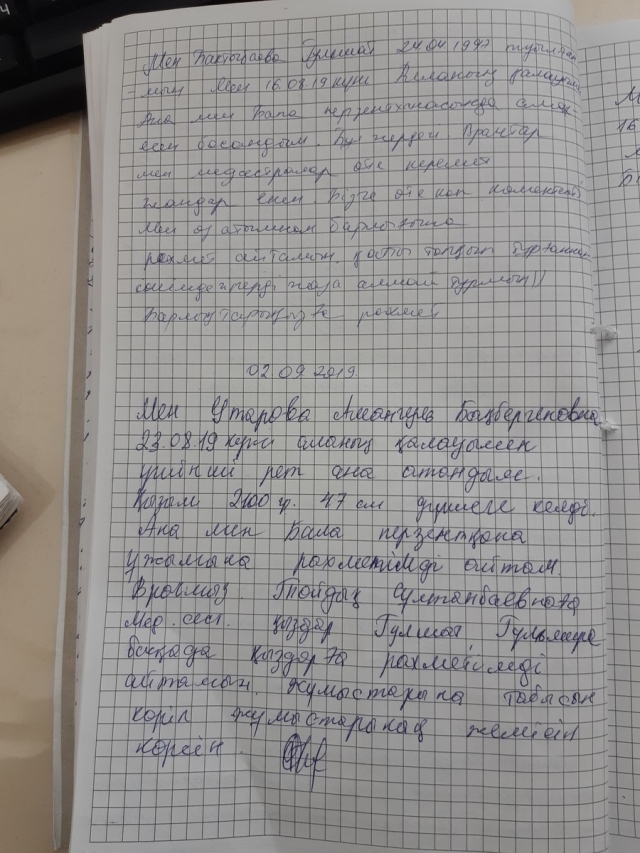 Мен Бактыбаева Гулшат 24.04.1997 туылған
- мын Мен 16.08.19 күні Алланың қалауымен
Ана мен Бала перзентханасында аман
есен босандым. Бұл жердегі Врачтар
мен медсестралар өте керемет
жандар екен. Бізге өте көп көмектесті
Мен өз атымнан барлығына
рахмет айтамын. қатты толқып тұрғаннан
жаза алмай тұрмын))
Барлықтарыңызға рахмет
02.09.2019.
Мен Утарова Амангуль Бицбергеновна
23.08.19 күні алланың қалауымен
үшінші рет ана атандым.
Қызым 2100 гр. 47 см дүниеге келді.
Ана мен Бала перзентхана
ұжымына рахметімді айтам
Врачымыз Тойдық Султанбаевнаға
Мед. сест. қыздар Гулшат, Гульмира
басқада қыздарға рахметімді
айтамын. Жұмыстарына табысын
көріп жұмыстарынаң жемісін
көрсін.